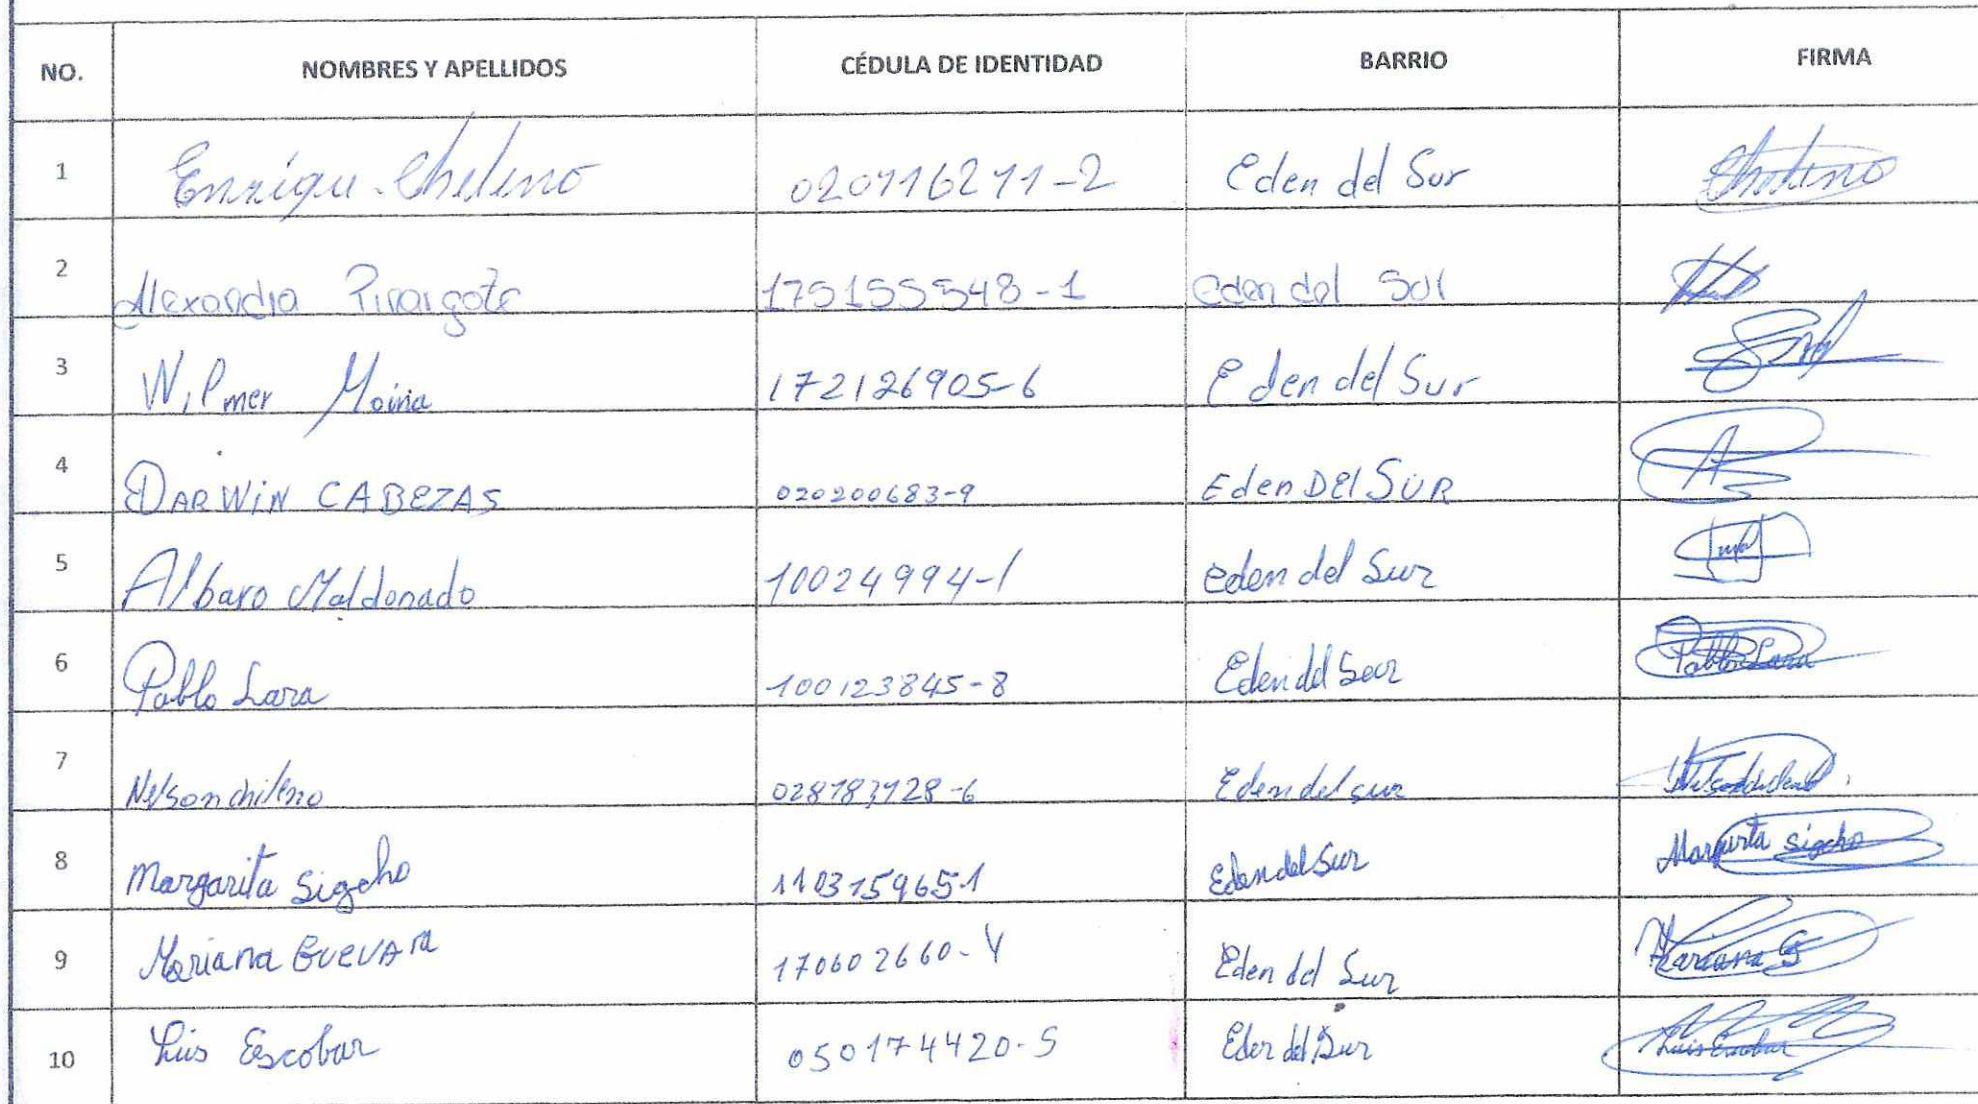 NO. NOMBRES Y APELLIDOS CÉDULA DE IDENTIDAD BARRIO FIRMA
1 Enrique Chileno 020116211-2 Eden del Sur Chileno
2 Alexandra 175155548-1 Eden del Sur
3 Wilmer Moina 172126905-6 Eden del Sur
4 DARWIN CABEZAS 020200683-9 Eden DEl SUR
5 Albaro Maldonado 10024994-1 Eden del Sur
6 Pablo Lara 100123845-8 Eden del Sur Pablo Lara
7 Nelson chileno 028183128-6 Eden del sur Nelson chileno
8 Margarita Sigcho 110315965-1 Eden del Sur Margarita Sigcho
9 Mariana GUEVARA 170602660-4 Eden del Sur Mariana G
10 Luis Escobar 050174420-5 Eden del Sur Luis Escobar